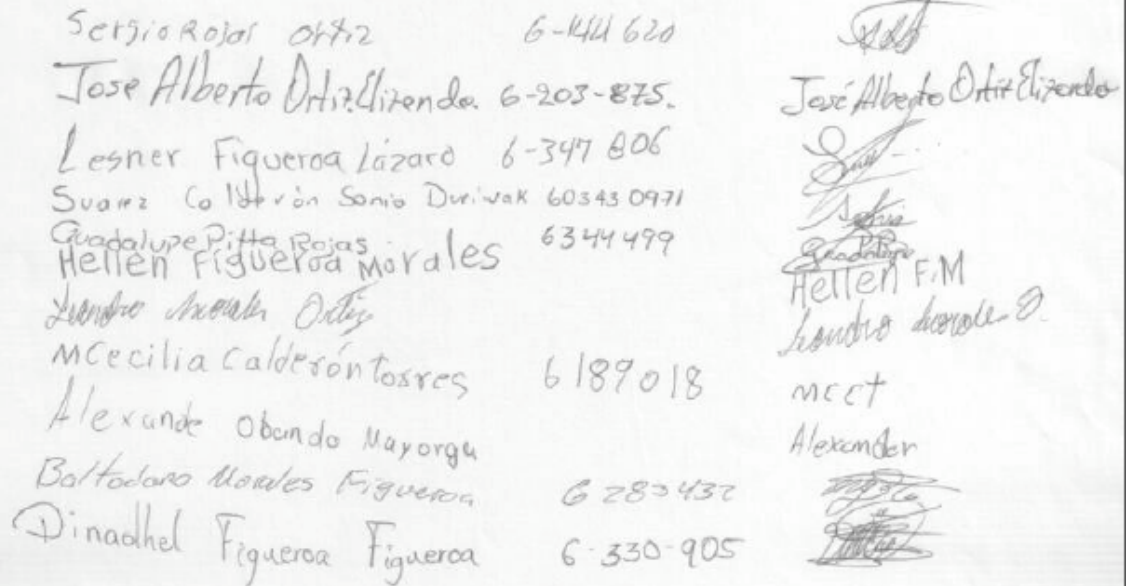 Sergio Rojas Ortiz 6-144 620
Jose Alberto Ortiz Elizondo. 6-203-875. José Alberto Ortiz Elizondo
Lesner Figueroa Lázaro 6-347 806
Suarez Calderón Sonia Duriwak 60343 0971 Sonia
Guadalupe Pitta Rojas 6344499 Guadalupe
Hellen Figueroa Morales Hellen F.M
Leandro Morales Ortiz Leandro Morales O.
MCecilia Calderón torres 6189018 MCCT
Alexande Obando Mayorga Alexander
Baltodano Morales Figueroa 6 283432
Dinadhel Figueroa Figueroa 6-330-905